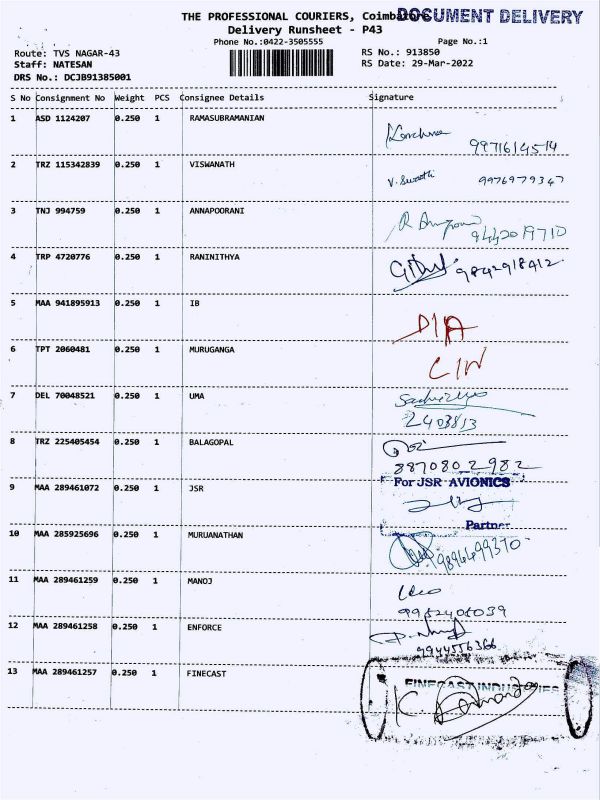 THE PROFESSIONAL COURIERS, Coimbatore
DOCUMENT DELIVERY
Delivery Runsheet - P43
Phone No.:0422-3505555 Page No.:1
Route: TVS NAGAR-43 RS No.: 913850
Staff: NATESAN RS Date: 29-Mar-2022
DRS No.: DCJB91385001
S No Consignment No Weight PCS Consignee Details Signature
1 ASD 1124207 0.250 1 RAMASUBRAMANIAN
9971614514
2 TRZ 115342839 0.250 1 VISWANATH
V. Swathi 9976979347
3 TNJ 994759 0.250 1 ANNAPOORANI
9442019710
4 TRP 4720776 0.250 1 RANINITHYA
9842918412
5 MAA 941895913 0.250 1 IB
D/A
6 TPT 2060481 0.250 1 MURUGANGA
C/N
7 DEL 70048521 0.250 1 UMA
2403813
8 TRZ 225405454 0.250 1 BALAGOPAL
8870802982
9 MAA 289461072 0.250 1 JSR
For JSR AVIONICS
Partner
10 MAA 285925696 0.250 1 MURUANATHAN
11 MAA 289461259 0.250 1 MANOJ
9952406039
12 MAA 289461258 0.250 1 ENFORCE
9944556366
13 MAA 289461257 0.250 1 FINECAST
FINECAST INDUSTRIES